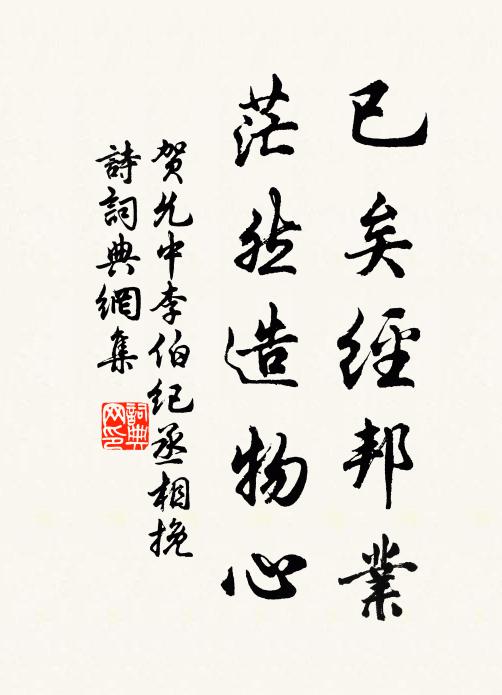 已矣經邦業
茫然造物心
賀允中李伯紀丞相挽
詩詞典網集
詞典網印